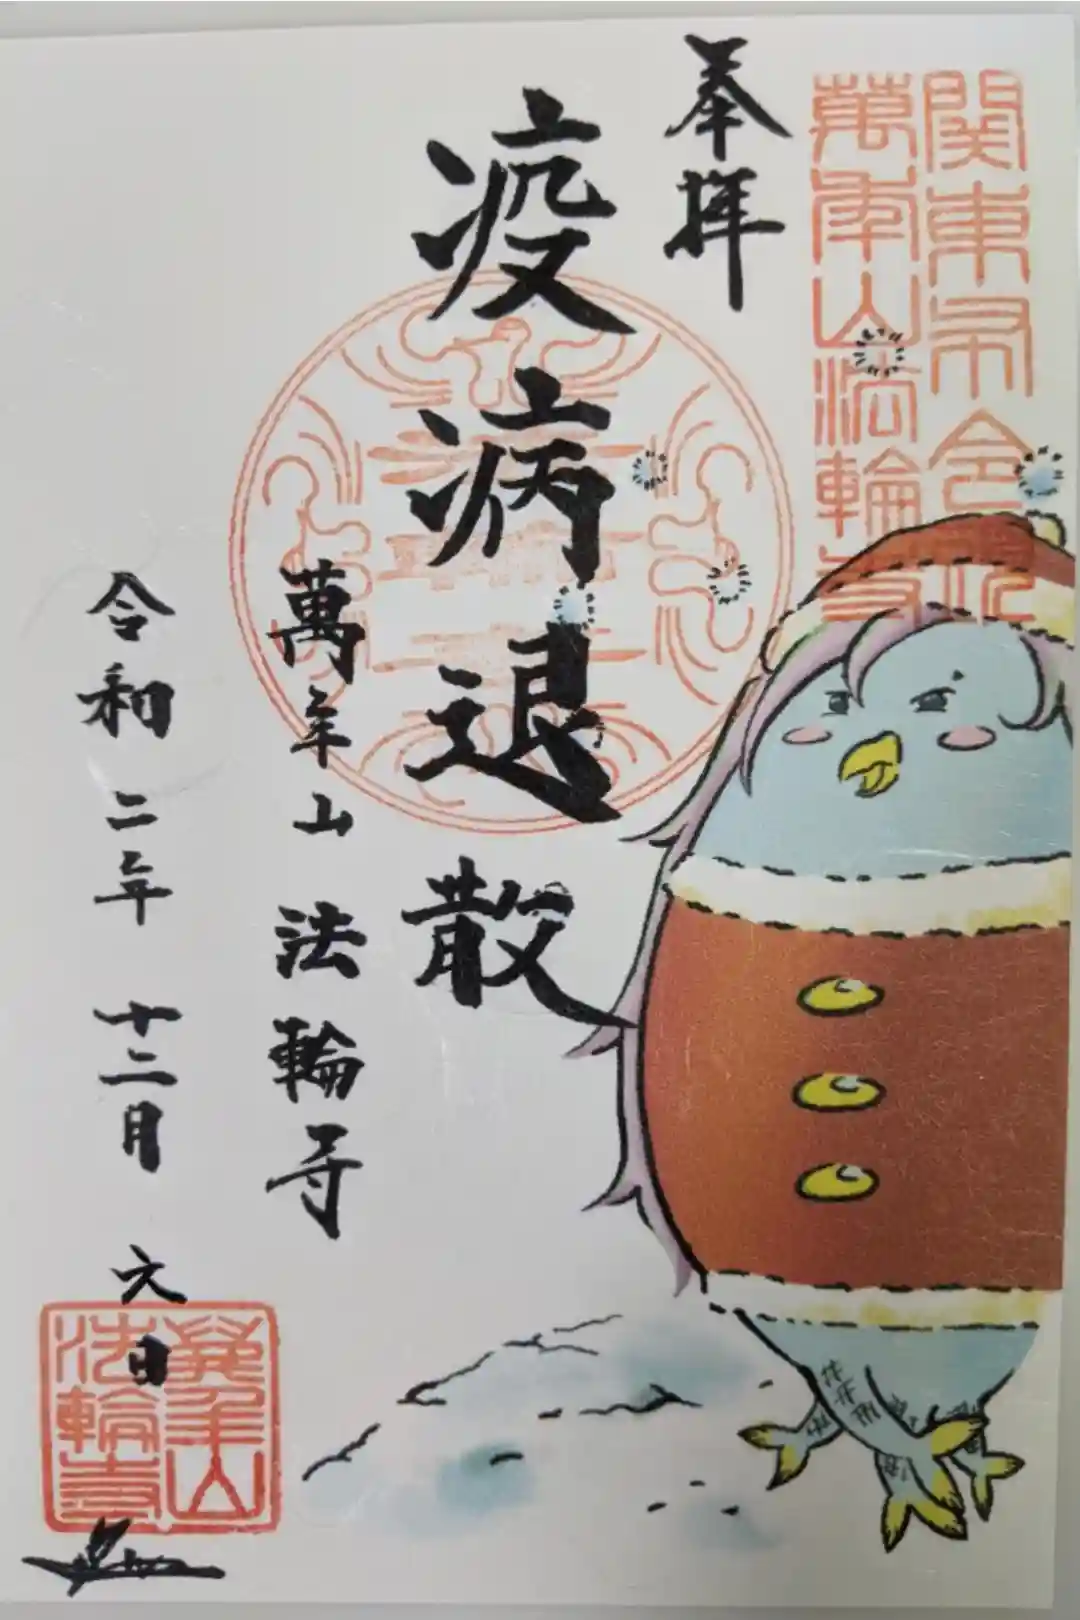 奉拝
疫病退散
萬年山 法輪寺
令和二年 十二月 六日
萬年山法輪寺
萬年山
法輪寺